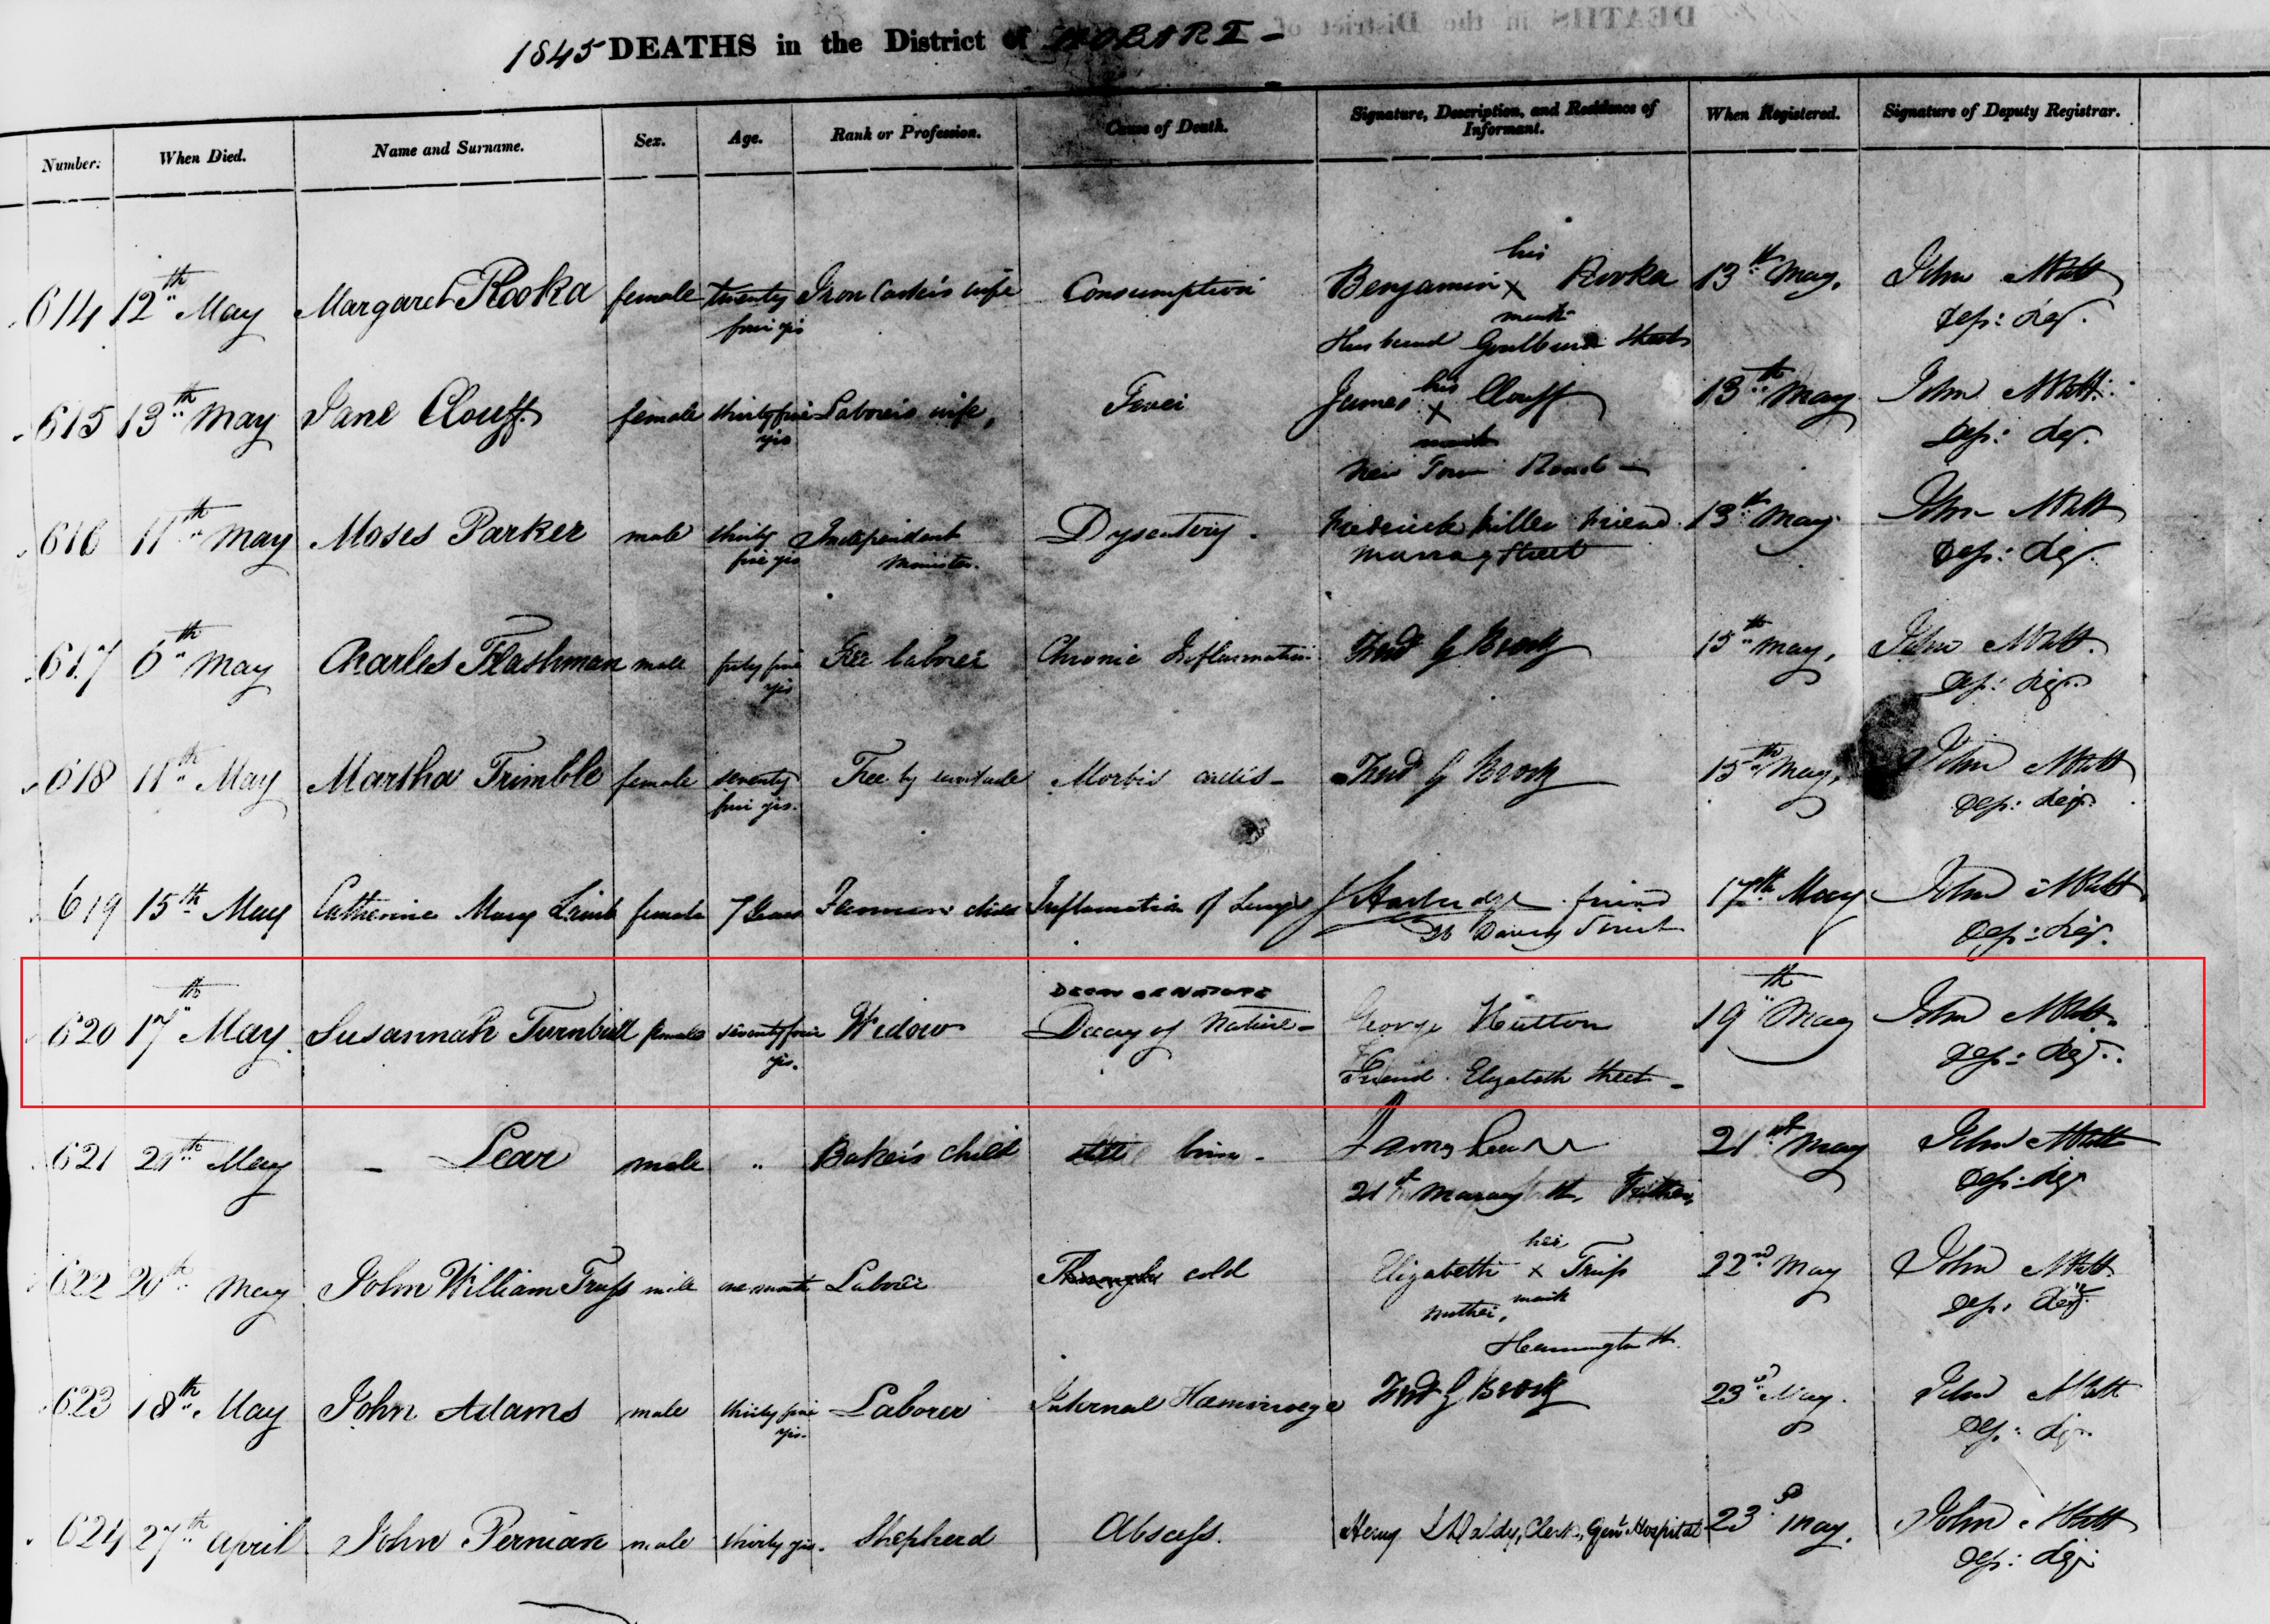 1845 DEATHS in the District of HOBART -
Number. When Died. Name and Surname. Sex. Age. Rank or Profession. Cause of Death. Signature, Description, and Residence of Informant. When Registered. Signature of Deputy Registrar.
his
614 12th May Margaret Rooka female twenty Consumption Benjamin x Rooka 13th May. John
five yrs mark Dep: Reg.
Husband Goulburn Street
615 13th May Jane Clouff female thirty five Laborer's wife, Fever James his x Clouff 13th May John
yrs mark Dep: Reg.
New Town Road -
616 11th May Moses Parker male thirty Independent Dysentery. Frederick Miller Friend 13th May John
five yrs Minister. Murray Street Dep: Reg.
617 6th May Charles Flashman male forty five Free laborer Chronic Inflammation Fred G Brock 15th May, John
yrs Dep: Reg.
618 11th May Martha Trimble female seventy Free by servitude Morbi Fred G Brock 15th May, John
five yrs. Dep: Reg.
619 15th May Catherine Mary female 7 Years child Inflamation of Lungs friend 17th May John
Davey Street Dep: Reg.
DECAY OF NATURE
620 17th May. Susannah Turnbull female seventy four Widow Decay of Nature - George Hutton 19th May John
yrs. Friend. Elizabeth Street - Dep: Reg.
621 21st May - Lear male " Baker's child still born - James Lear 21st May John
21 Murray St. Father, Dep: Reg
her
622 20th May John William Truss male one month Laborer cold Elizabeth x Truss 22nd May John
mother, mark Dep: Reg.
Harrington St.
623 18th May John Adams male thirty five Laborer Internal Hæmorrage Fred G Brock 23rd May. John
yrs. Dep: Reg.
624 27th April John Pernian male thirty yrs. Shepherd Abscess. Henry Clerk, Genl Hospital 23rd May. John
Dep: Reg: